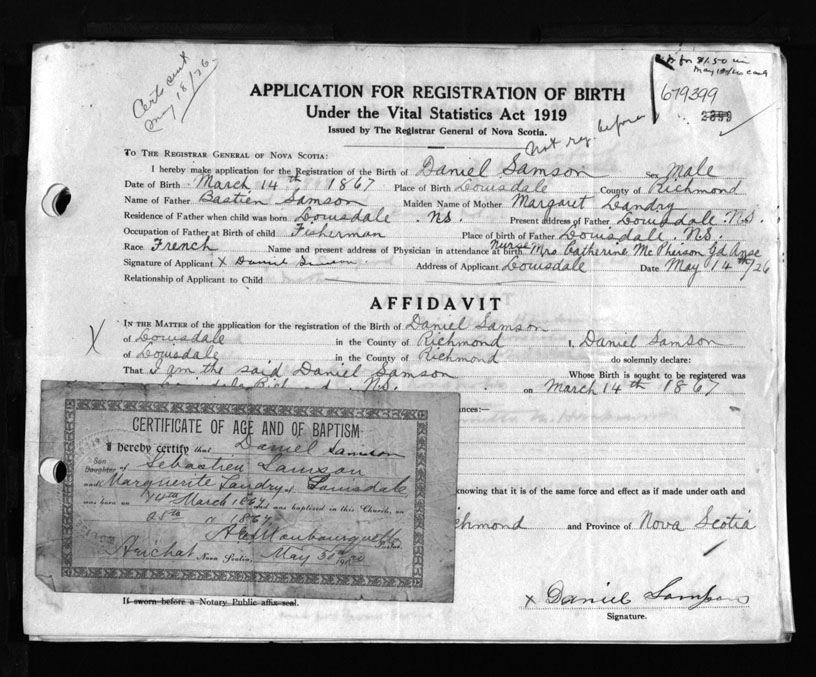 Certs sent
May 18/26
$1.50 in
May 18/26
679399
2399
APPLICATION FOR REGISTRATION OF BIRTH
Under the Vital Statistics Act 1919
Issued by The Registrar General of Nova Scotia.
Not reg before
To The Registrar General of Nova Scotia:
I hereby make application for the Registration of the Birth of Daniel Samson Sex Male
Date of Birth March 14th 1867 Place of Birth Louisdale County of Richmond
Name of Father Bastien Samson Maiden Name of Mother Margaret Landry
Residence of Father when child was born Louisdale . NS. Present address of Father Louisdale N.S.
Occupation of Father at Birth of child Fisherman Place of birth of Father Louisdale . N.S.
Race French Name and present address of Physician in attendance at birth Nurse Mrs Catherine McPherson Gd Anse
Signature of Applicant x Daniel Address of Applicant Louisdale Date May 14th/26
Relationship of Applicant to Child
AFFIDAVIT
In the Matter of the application for the registration of the Birth of Daniel Samson
X
of Louisdale in the County of Richmond I, Daniel Samson
of Louisdale in the County of Richmond do solemnly declare:
That i am the said Daniel Samson Whose Birth is sought to be registered was
N.S. on March 14th 1867
nces:—
CERTIFICATE OF AGE AND OF BAPTISM
I hereby certify that Daniel Samson
Son Daughter of Sebastien Samson
and Marguerite Landry of Louisdale
was born on 14th March 1867 and was baptized in this Church, on
1867
Arichat Nova Scotia, May 31st
knowing that it is of the same force and effect as if made under oath and
chmond and Province of Nova Scotia
If sworn before a Notary Public affix seal.
x Daniel Sampson
Signature.